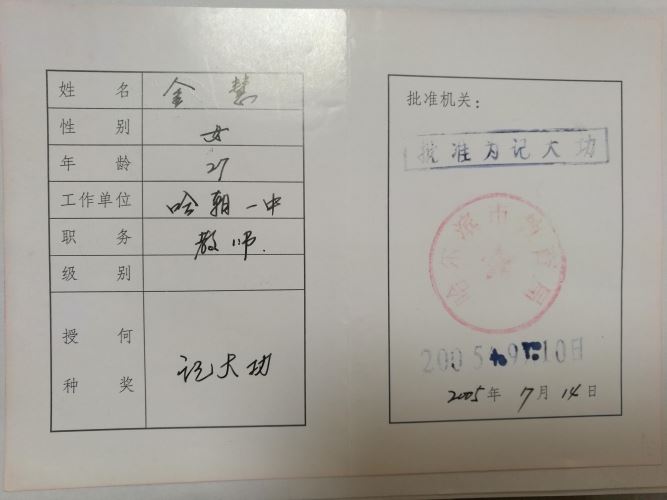 姓 名 金慧
性 别 女
年 龄 27
工作单位 哈朝一中
职 务 教师.
级 别
授 何
种 奖
记大功
批准机关：
批准为记大功
哈尔滨市教育局
2005年9月10日
2005年 7月 14日